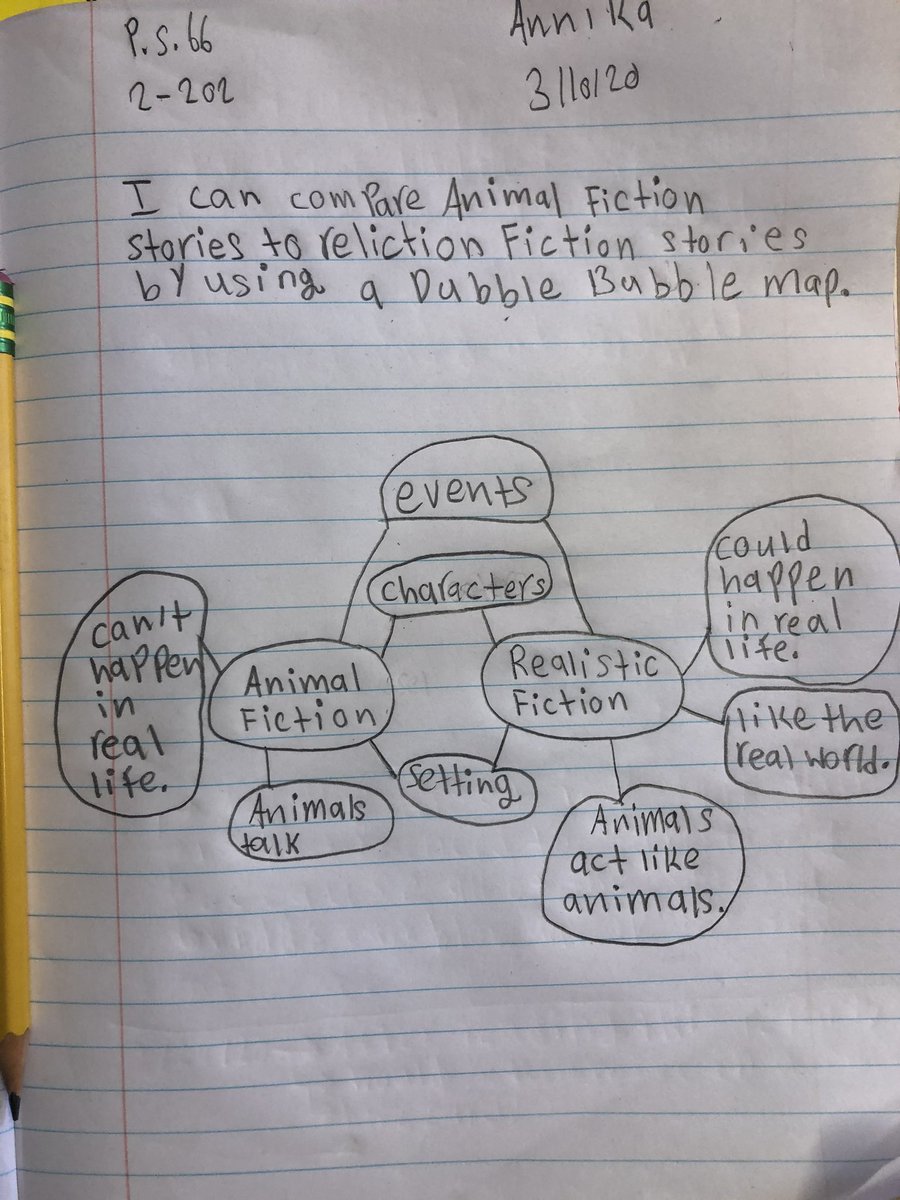 P.S.66
Annika
2-202
3/10/20
I can compare Animal Fiction
stories to reliction Fiction stories
by using a Dubble Bubble map.
events
characters
can't
happen
in
real
life.
Animal
Fiction
Realistic
Fiction
could
happen
in real
life.
like the
real world.
setting
Animals
talk
Animals
act like
animals.